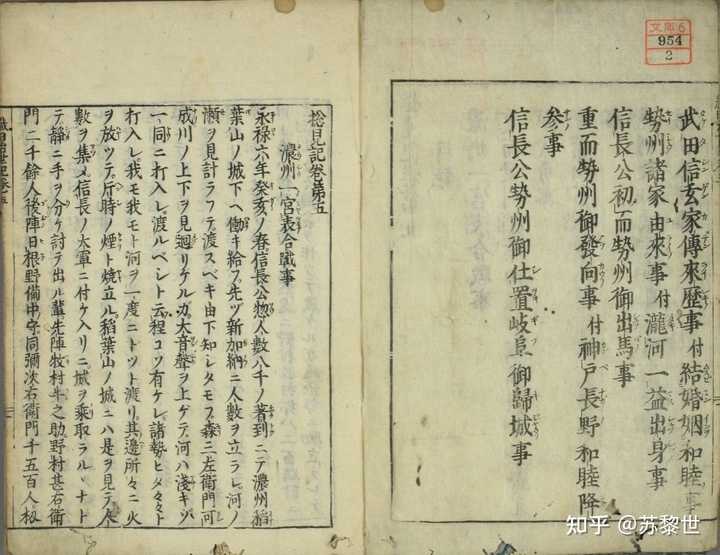 武田信玄家傳來歷事付結婚姻和睦事
勢州諸家由來事付瀧河一益出身事
信長公初而勢州御出馬事
重而勢州御發向事付神戸長野和睦降
参事
信長公勢州御仕置岐阜御歸城事
文庫6
954
2
捴見記卷第五
濃州一宮表合戰事
永禄六年癸亥ノ春信長公惣人數八千ノ著到ニテ濃州稲
葉山ノ城下ヘ働キ給フ先ヅ新加納ニ人數ヲ立ラレ河ノ
瀬ヲ見計ラフテ渡スベキ由下知シタモフ森三左衛門河
成川ノ上下ヲ見廻リケルガ大音聲ヲ上ゲテ河ハ淺キゾ
一同ニ打入レ渡ルベシト云程コソ有ケレ諸勢ヒタ々々ト
打入レ我モ我モト河ヲ一度ニトツト渡リ其邊所々ニ火
ヲ放ツテ片時ノ煙ト焼立ル稲葉山ノ城ニハ是ヲ見テ人
數ヲ集メ信長ノ大軍ニ付ケ入リニ城ヲ乘取ラルヽナト
テ静ニ手ヲ分ケ討テ出ル輩先陣牧村牛之助野村甚右衛
門二千餘人後陣日根野備中守同彌次右衛門千五百人扨
知乎 @苏黎世